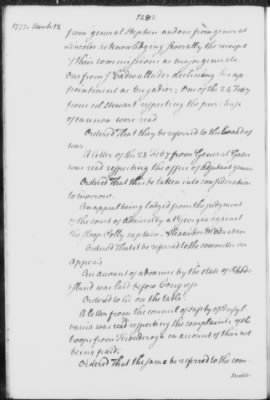 1282
1777. March 13
from general Stephen and one from general
Lincoln acknowledging severally the receipt
of their commissions as major generals
One from J Cadwallader declining his ap
pointment as brigadier; One of the 24 Feby
from col Stewart respecting the purchase
of cannon were read
Ordered That they be referred to the board of
war.
A letter of the 28 of Feby from General Gates
was read respecting the office of adjutant general
Ordered That this be taken into consideration
to morrow.
An appeal being lodged from the judgment
of the court of Admiralty at Georgia against
the sloop Polly captain
Ordered that it be referred to the committee on
Appeals
An amount of advances by the state of Rhode
island was laid before Congress
Ordered to lie on the table.
A letter from the council of safety of Pensyl
vania was read respecting the complaints of the
troops from Ticonderoga on account of their not
being paid.
Ordered That the same be referred to the com
mittee